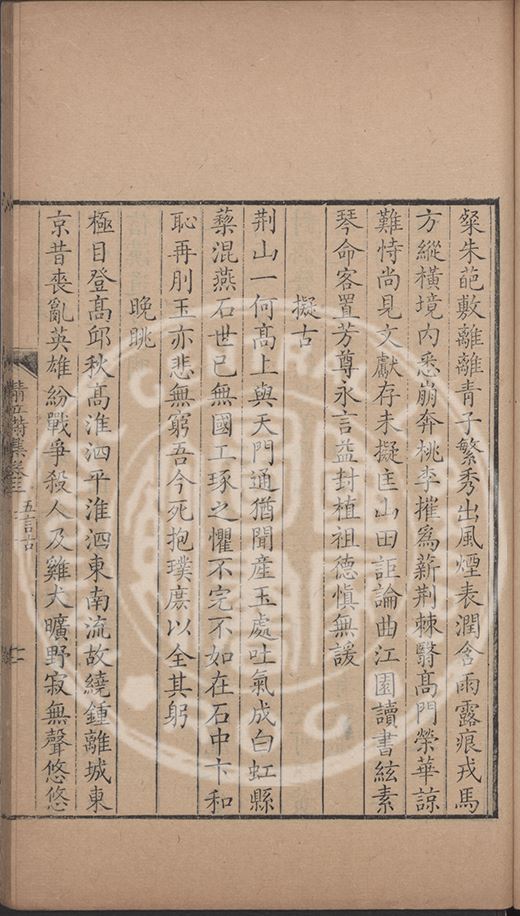 粲朱葩敷離離青子繁秀出風煙表潤含雨露痕戎馬
方縱橫境内悉崩奔桃李摧爲薪荆棘翳髙門榮華諒
難恃尚見文獻存未擬匡山田詎論曲江園讀書絃素
琴命客置芳尊永言益封植祖德愼無諼
擬古
荆山一何髙上與天門通猶聞産玉處吐氣成白虹縣
蔾混燕石世已無國工琢之懼不完不如在石中卞和
恥再刖玉亦悲無窮吾今死抱璞庶以全其躬
晩眺
極目登髙邱秋髙淮泗平淮泗東南流故繞鍾離城東
京昔喪亂英雄紛戰爭殺人及雞犬曠野寂無聲悠悠
五言古